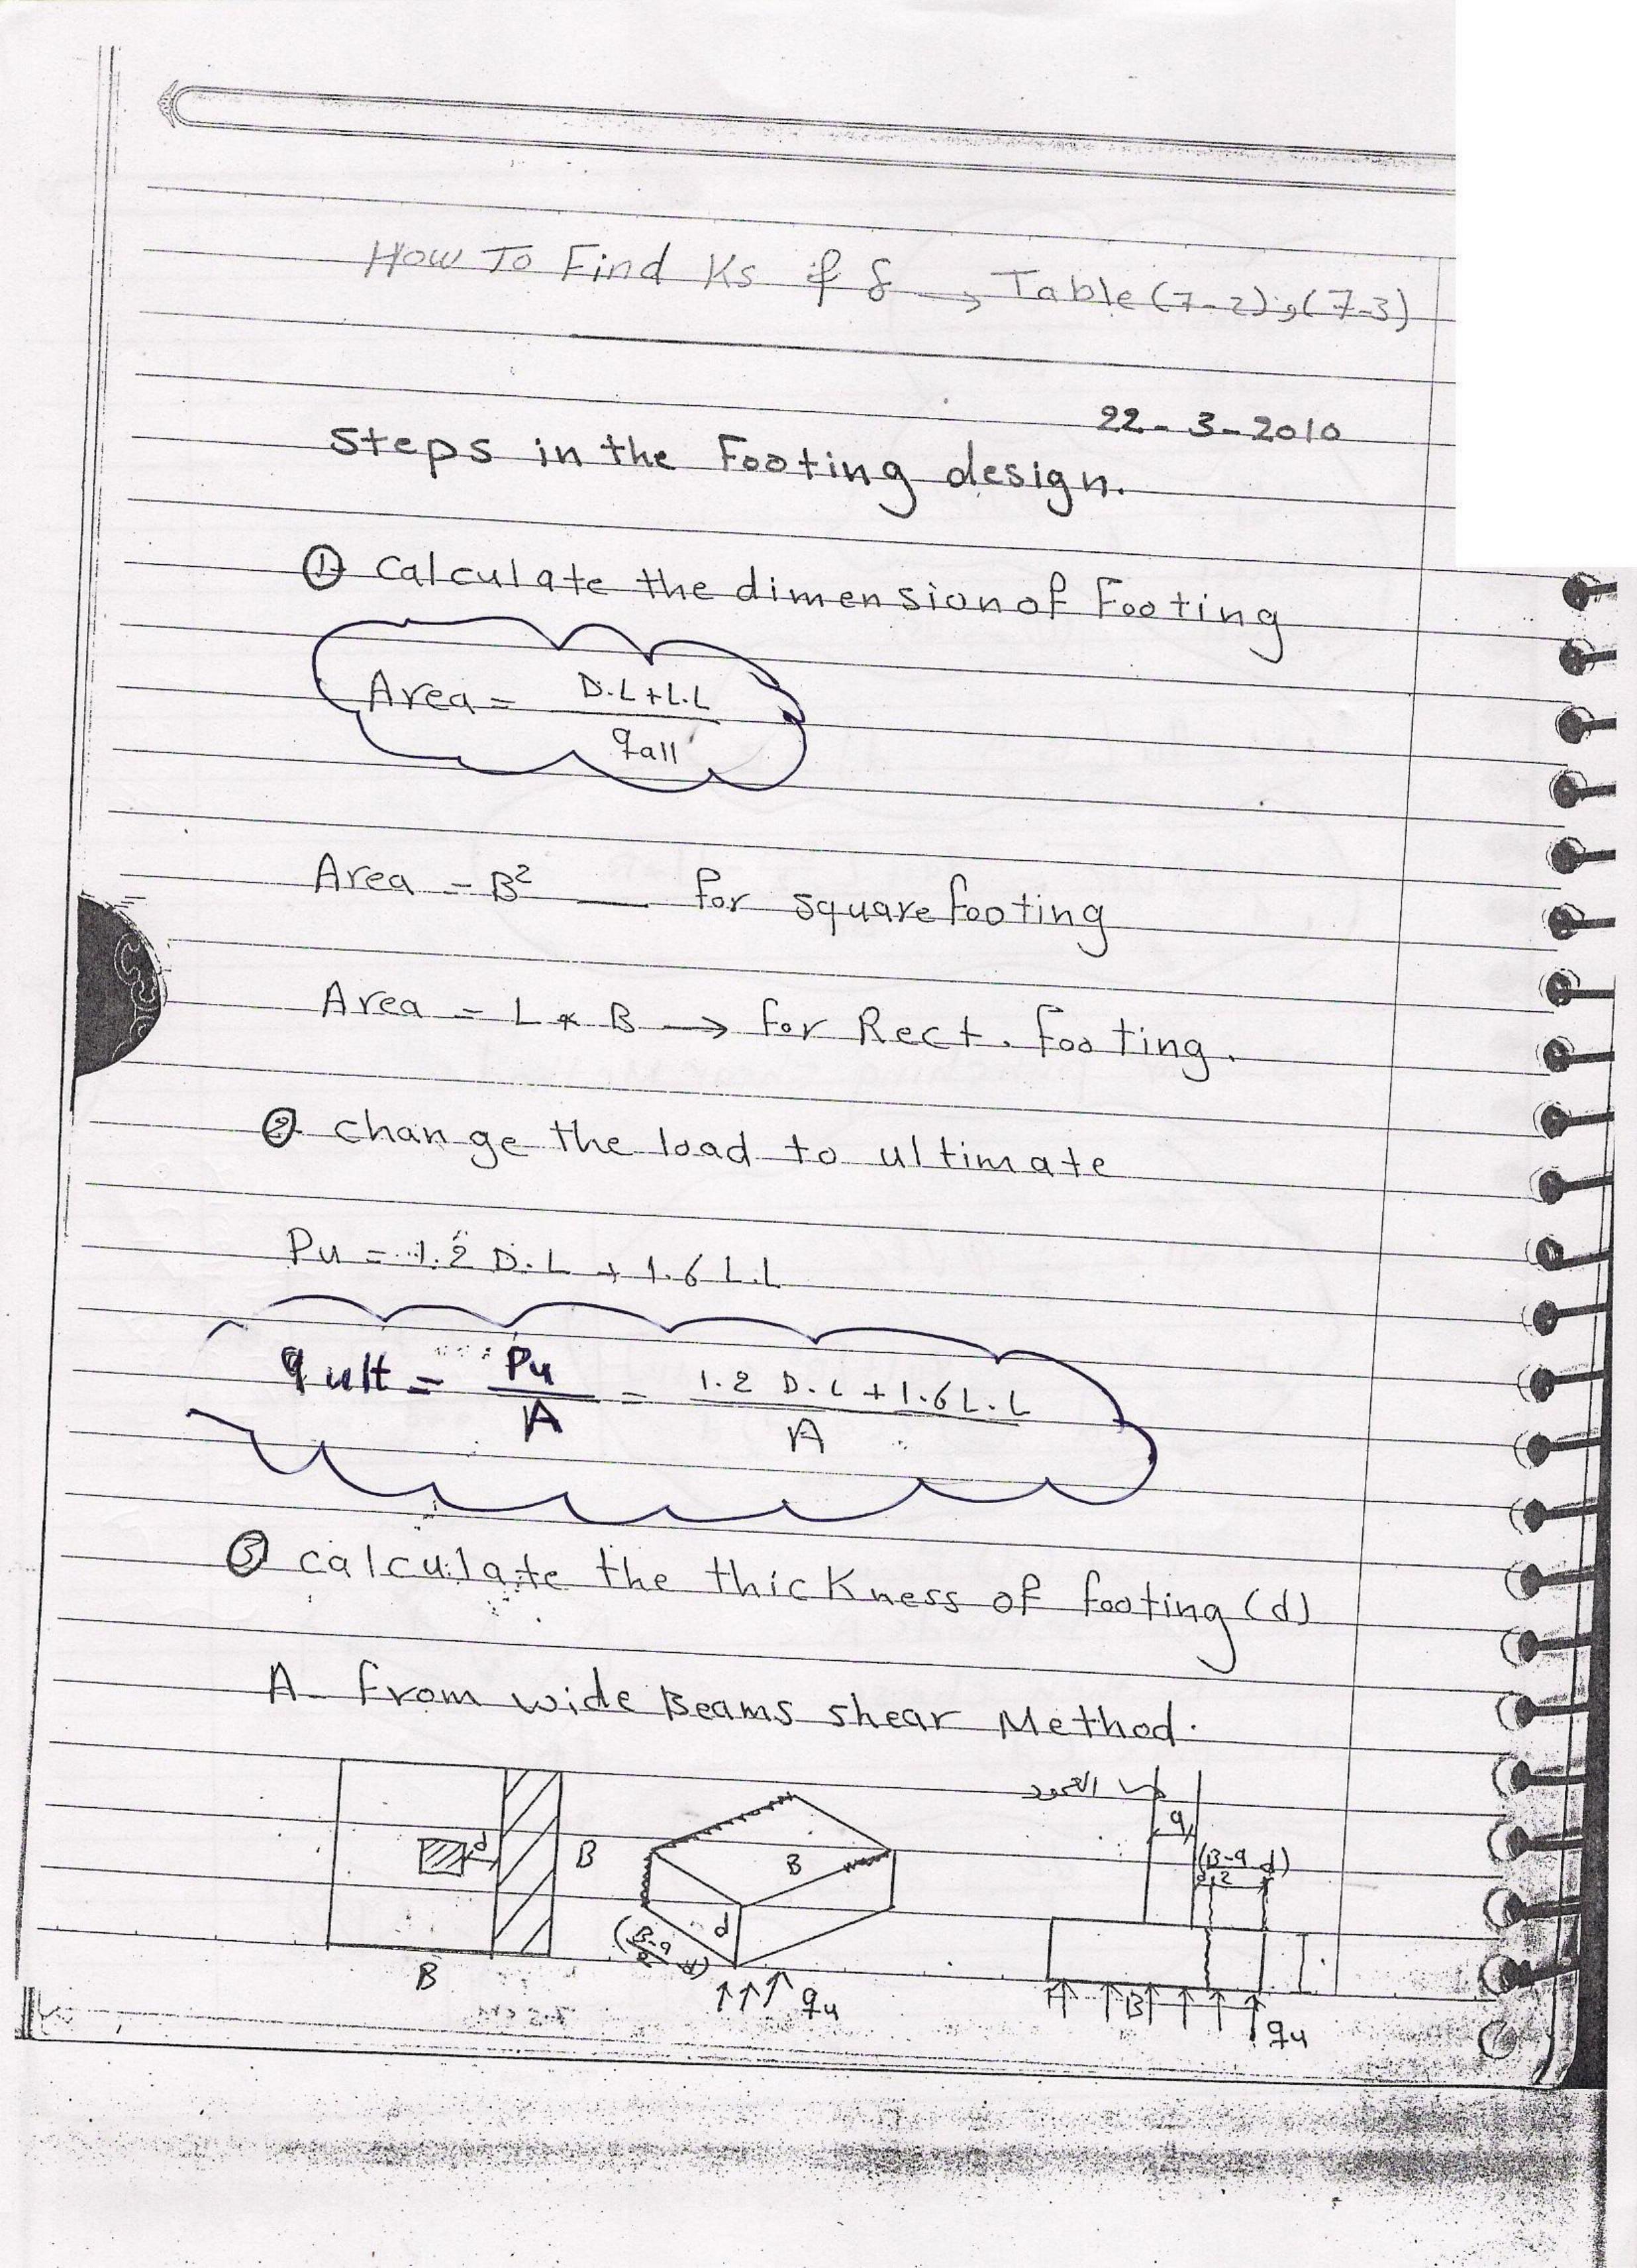 How To Find Ks if δ → Table (7-2), (7-3)
22-3-2010
steps in the Footing design.
① calculate the dimension of Footing
Area = D.L+L.L / qall
Area = B² — for square footing
Area = L * B → for Rect. footing.
② change the load to ultimate
Pu = 1.2 D.L + 1.6 L.L
qult = Pu / A = 1.2 D.L + 1.6 L.L / A
③ calculate the thickness of footing (d)
A- from wide Beams shear Method.
العمود
a
d
B
B
(B-a/2 - d)
d
(B-a/2 - d)
B
↑↑↑ qu
B
qu